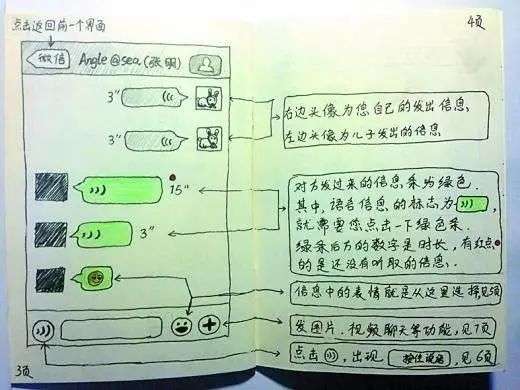 点击返回前一个界面
微信
Angle@sea.(张明)
3"
3"
15"
3"
3页
4页
右边头像为您自己的发出信息,
左边头像为儿子发出的信息
对方发过来的信息条为绿色.
其中,语音信息的标志为
就需要您点击一下绿色条.
绿条后方的数字是时长,有红点
的是还没有听取的信息.
信息中的表情就是从这里选择见5页
发图片.视频聊天等功能,见7页
点击 ,出现 按住说话 ,见6页